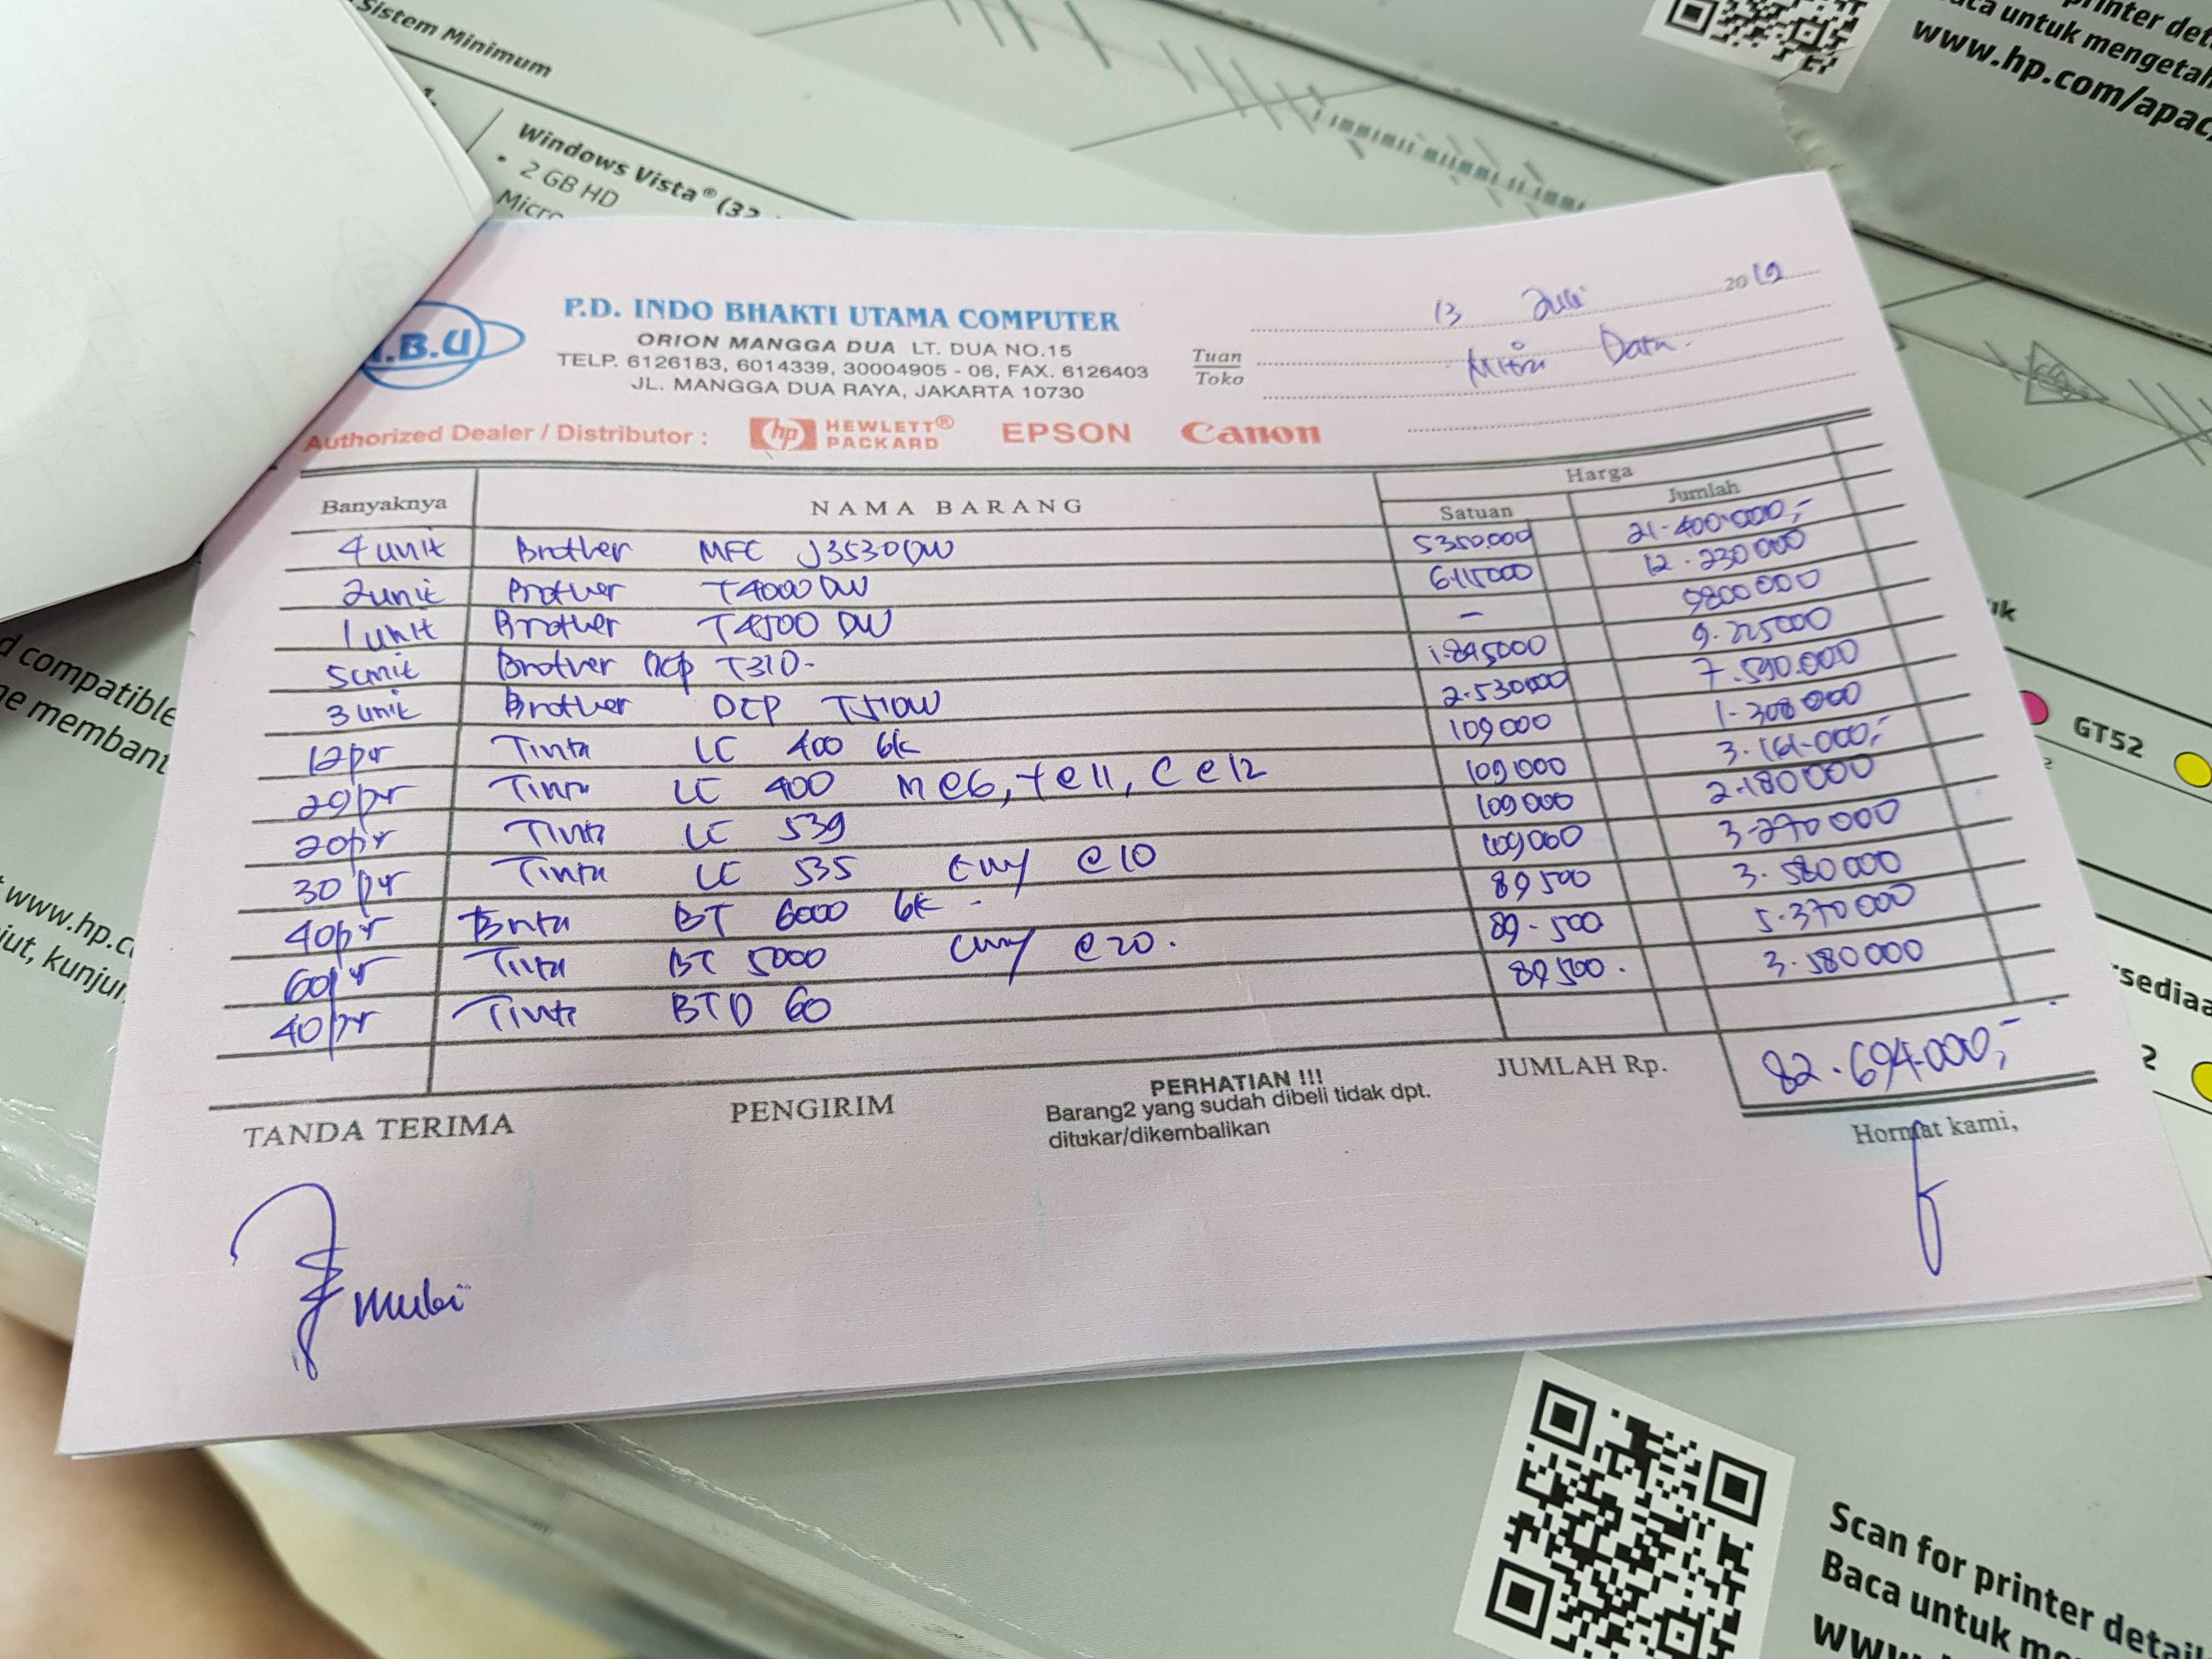 Sistem Minimum
Windows Vista® (32
• 2 GB HD
Micro
printer det
ca untuk mengetah
www.hp.com/apac
I.B.U
P.D. INDO BHAKTI UTAMA COMPUTER
ORION MANGGA DUA LT. DUA NO.15
TELP. 6126183, 6014339, 30004905 - 06, FAX. 6126403
JL. MANGGA DUA RAYA, JAKARTA 10730
13 Juli 2019
Tuan
Toko
Mitra Data.
Authorized Dealer / Distributor : hp HEWLETT® PACKARD EPSON Canon
Banyaknya NAMA BARANG Harga
Satuan Jumlah
4 unit Brother MFC J3530DW 5350.000 21.400.000,-
2 unit Brother T4000 DW 6.115000 12.230000
1 unit Brother T4500 DW - 9800000
5 unit Brother DCP T310- 1.845000 9.225000
3 unit Brother DCP T510W 2.530000 7.590.000
12 pr Tinta LC 400 bk 109000 1-308000
29 pr Tinta LC 400 M@6, Y@11, C@12 109000 3.161.000,-
20 pr Tinta LC 539 109000 2.180000
30 pr Tinta LC 535 cmy @10 109000 3-270000
40 pr Tinta BT 6000 bk - 89500 3.580000
60 pr Tinta BT 5000 cmy @20. 89-500 5.370000
40 pr Tinta BTD 60 89500. 3.580000
TANDA TERIMA PENGIRIM PERHATIAN !!! JUMLAH Rp. 82.694.000,-
Barang2 yang sudah dibeli tidak dpt.
ditukar/dikembalikan
Hormat kami,
d compatible
e membant
www.hp.c
jut, kunjun
uk
GT52
2
rsediaa
2
Scan for printer detail
Baca untuk me
www.